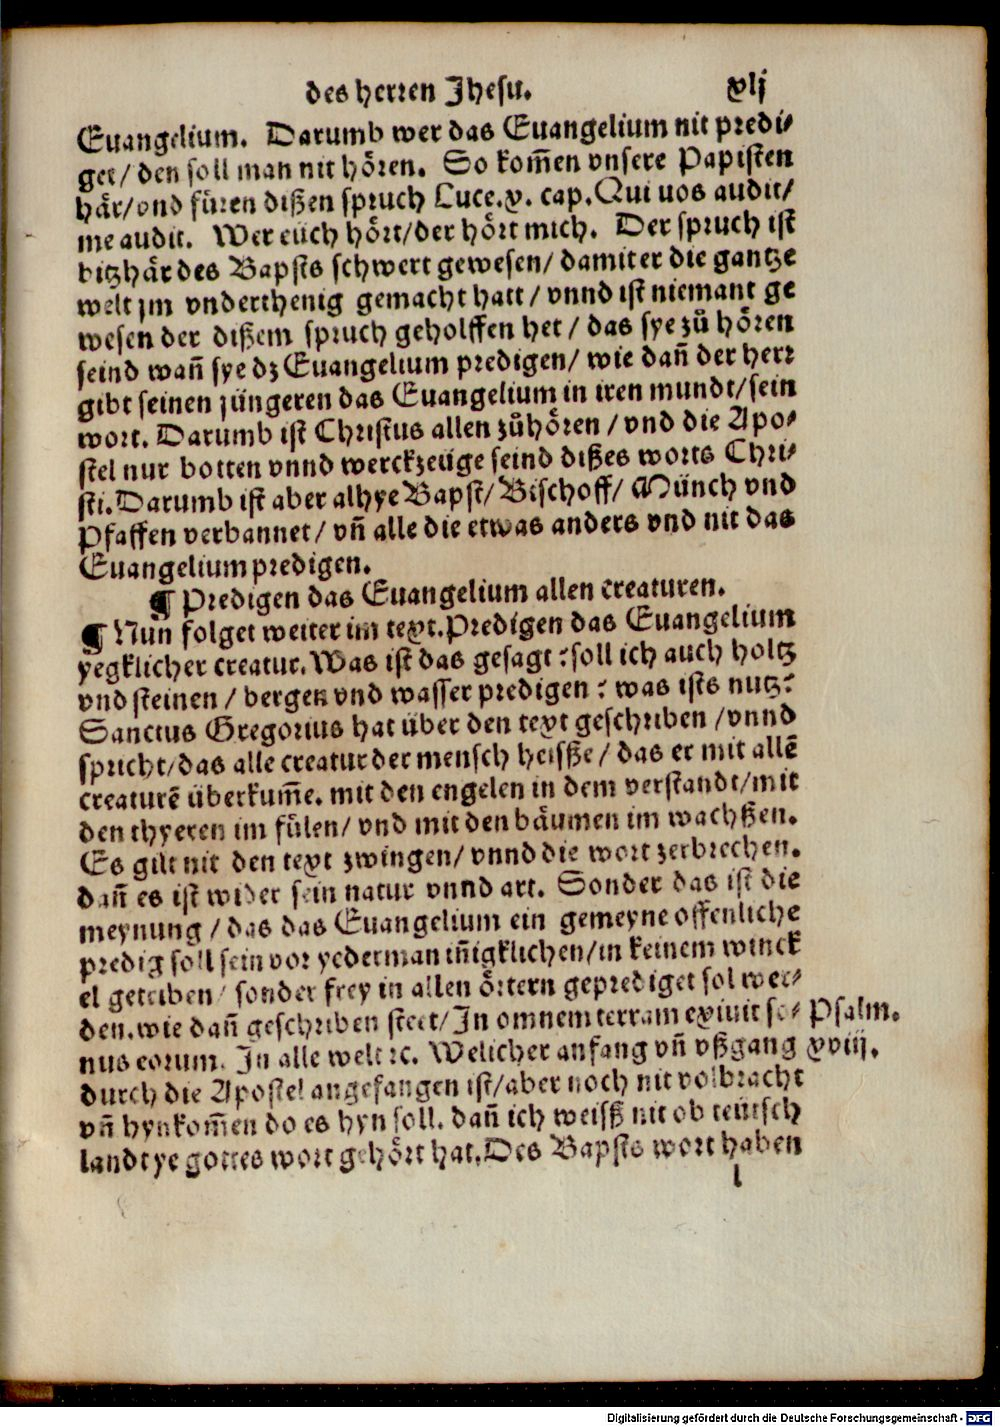 des herren Jhesu. xlj
Euangelium. Darumb wer das Euangelium nit predi⸗
get/ den soll man nit hören. So kom̄en vnsere Papisten
här/vnd füren dißen spruch Luce.x. cap. Qui uos audit/
me audit. Wer eüch hört/der hört mich. Der spruch ist
bitzhär des Bapsts schwert gewesen/ damit er die gantze
welt jm vnderthenig gemacht hatt/ vnnd ist niemant ge
wesen der dißem spruch geholffen het/ das sye zů hören
seind wañ sye dz Euangelium predigen/ wie dañ der herr
gibt seinen jüngeren das Euangelium in iren mundt/sein
wort. Darumb ist Christus allen zůhören/ vnd die Apo⸗
stel nur botten vnnd werckzeüge seind dißes worts Chri⸗
sti. Darumb ist aber alhye Bapst/ Bischoff/ Münch vnd
Pfaffen verbannet/ vñ alle die etwas anders vnd nit das
Euangelium predigen.
¶ Predigen das Euangelium allen creaturen.
¶ Nun folget weiter im text. Predigen das Euangelium
yegklicher creatur. Was ist das gesagt? soll ich auch holtz
vnd steinen/ bergen vnd wasser predigen? was ists nutz?
Sanctus Gregorius hat über den text geschriben/vnnd
spricht/das alle creatur der mensch heisße/ das er mit allē
creaturē überkum̄e. mit den engelen in dem verstandt/mit
den thyeren im fülen/ vnd mit den bäumen im wachßen.
Es gilt nit den text zwingen/ vnnd die wort zerbrechen.
dañ es ist wider sein natur vnnd art. Sonder das ist die
meynung/ das das Euangelium ein gemeyne offenliche
predig soll sein vor yederman iñigklichen/in keinem winck
el getriben/ sonder frey in allen örtern geprediget sol wer⸗
den. wie dañ geschriben steet/ In omnem terram exiuit so⸗ Psalm.
nus eorum. In alle welt ꝛc. Welicher anfang vñ vßgang xviij.
durch die Apostel angefangen ist/aber noch nit volbracht
vñ hynkom̄en do es hyn soll. dañ ich weiß nit ob teütsch
landt ye gottes wort gehört hat. Des Bapsts wort haben
l
Digitalisierung gefördert durch die Deutsche Forschungsgemeinschaft - DFG